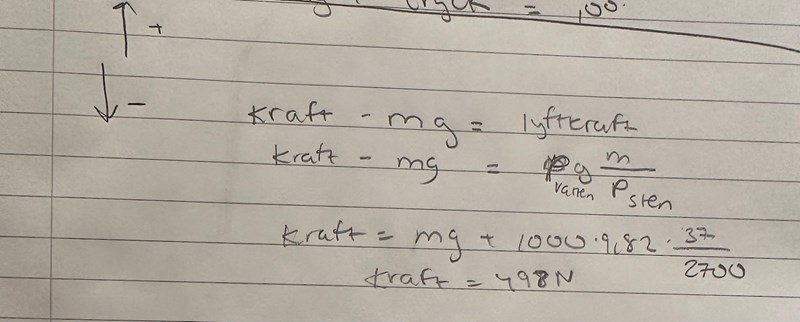 tryck = 1,00.
+
−
kraft - mg = lyftkraft
kraft - mg = ρ vatten g m / ρ sten
kraft = mg + 1000 · 9,82 · 37 / 2700
kraft = 498N